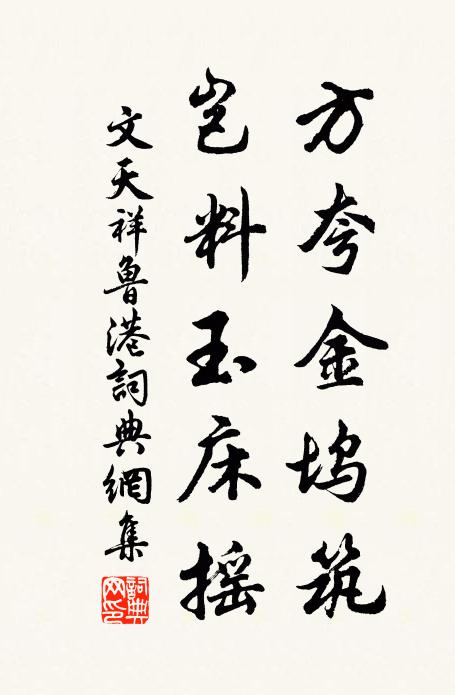 方夸金坞筑
岂料玉床摇
文天祥魯港詞典網集
詞典網印